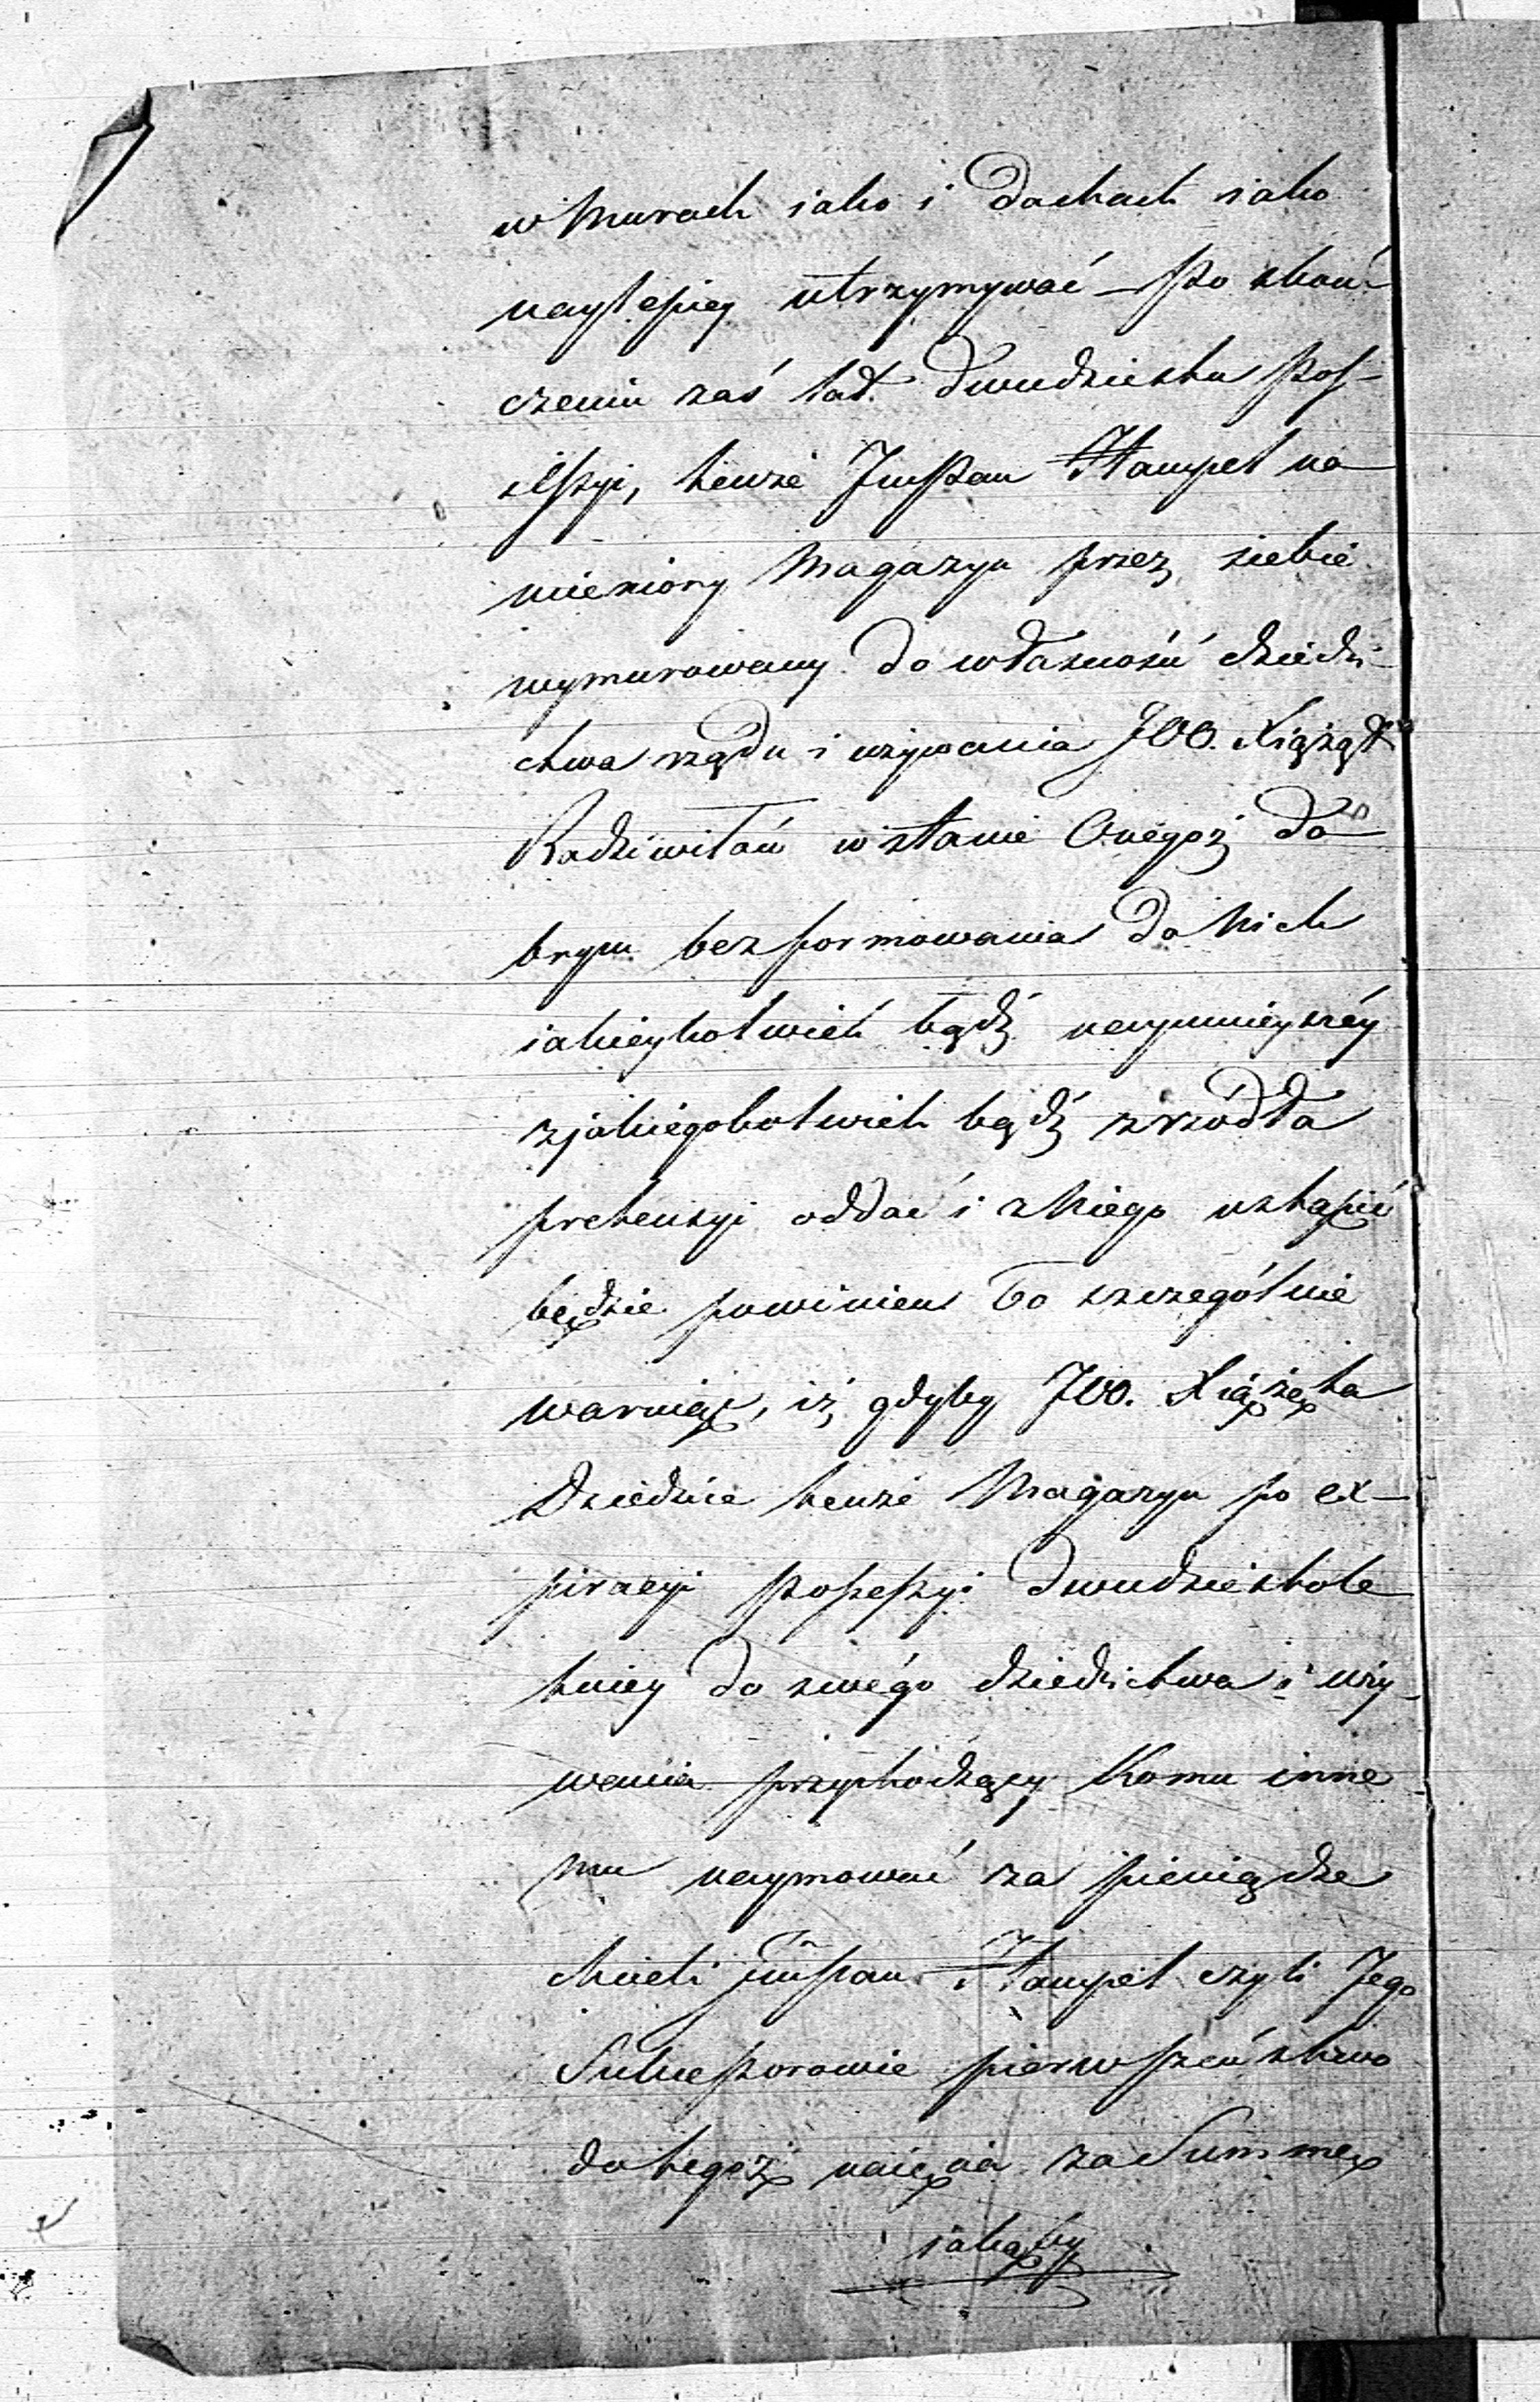 w Murach iako i Dachach iako
naylepiey utrzymywać – Po skoń-
czeniu zaś lat Dwudziestu Pos-
sessyi, tenże JmPan Hampel na-
mieniony Magazyn przez siebie
wymurowany do własności dziedzi-
ctwa rządu i używania JOO. Xiążąt
Radziwiłłów w stanie Onegoż do-
brym bez formowania do Nich
iakieykolwiek bądź naymnieyszéy
z jakiegokolwiek bądź zrzódła
pretensyi oddać i z Niego ustąpić
będzie powinien to szczególnie
waruiąc, iż gdyby JOO. Xiążęta
Dziedzice tenże Magazyn po ex-
piracyi Possessyi Dwudziestole
tniey do swégo dziedzictwa i uży-
wania przychodzący Komu inne
mu naymować za pieniądze
chcieli JmPan Hampel czyli Jego
Sukcessorowie pierwszeństwo
do tegoż naięcia za Summę
iakąby